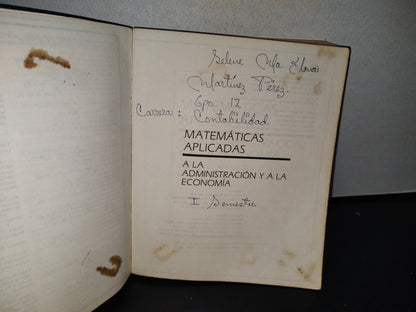 Selene Ma Elena
Martínez Pérez.
Gpo. 12
Carrera: Contabilidad
MATEMÁTICAS
APLICADAS
A LA
ADMINISTRACIÓN Y A LA
ECONOMÍA
II Semestre